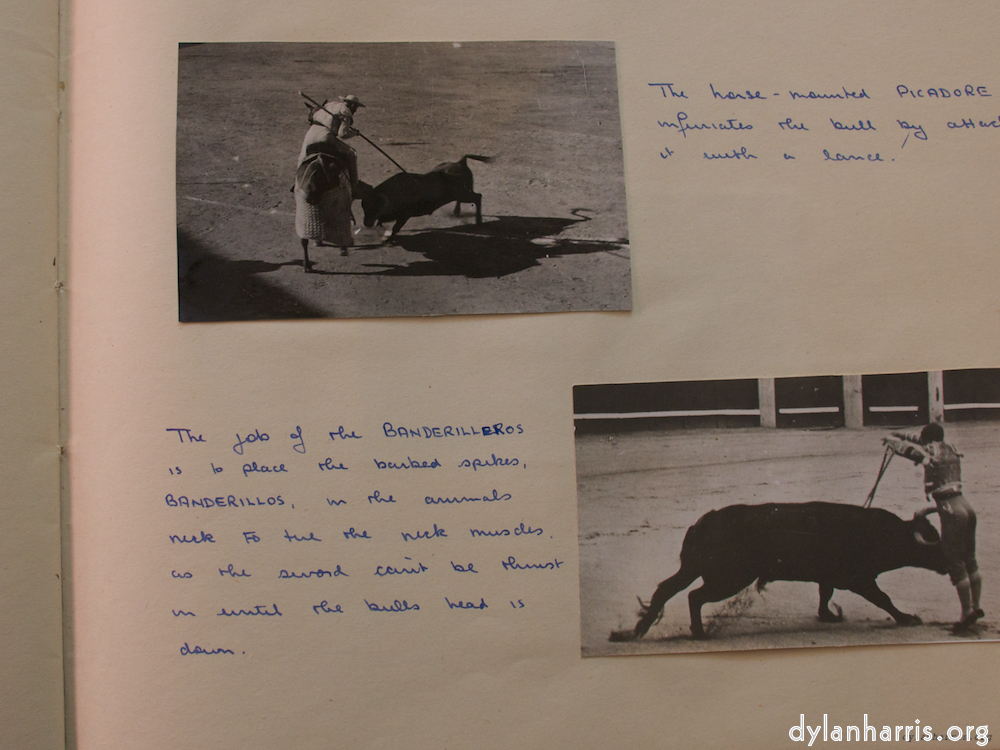 The horse-mounted PICADORE
infuriates the bull by attac
it with a lance.
The job of the BANDERILLEROS
is to place the barbed spikes,
BANDERILLOS, in the animals
neck to tire the neck muscles.
as the sword can't be thrust
in until the bulls head is
down.
dylanharris.org